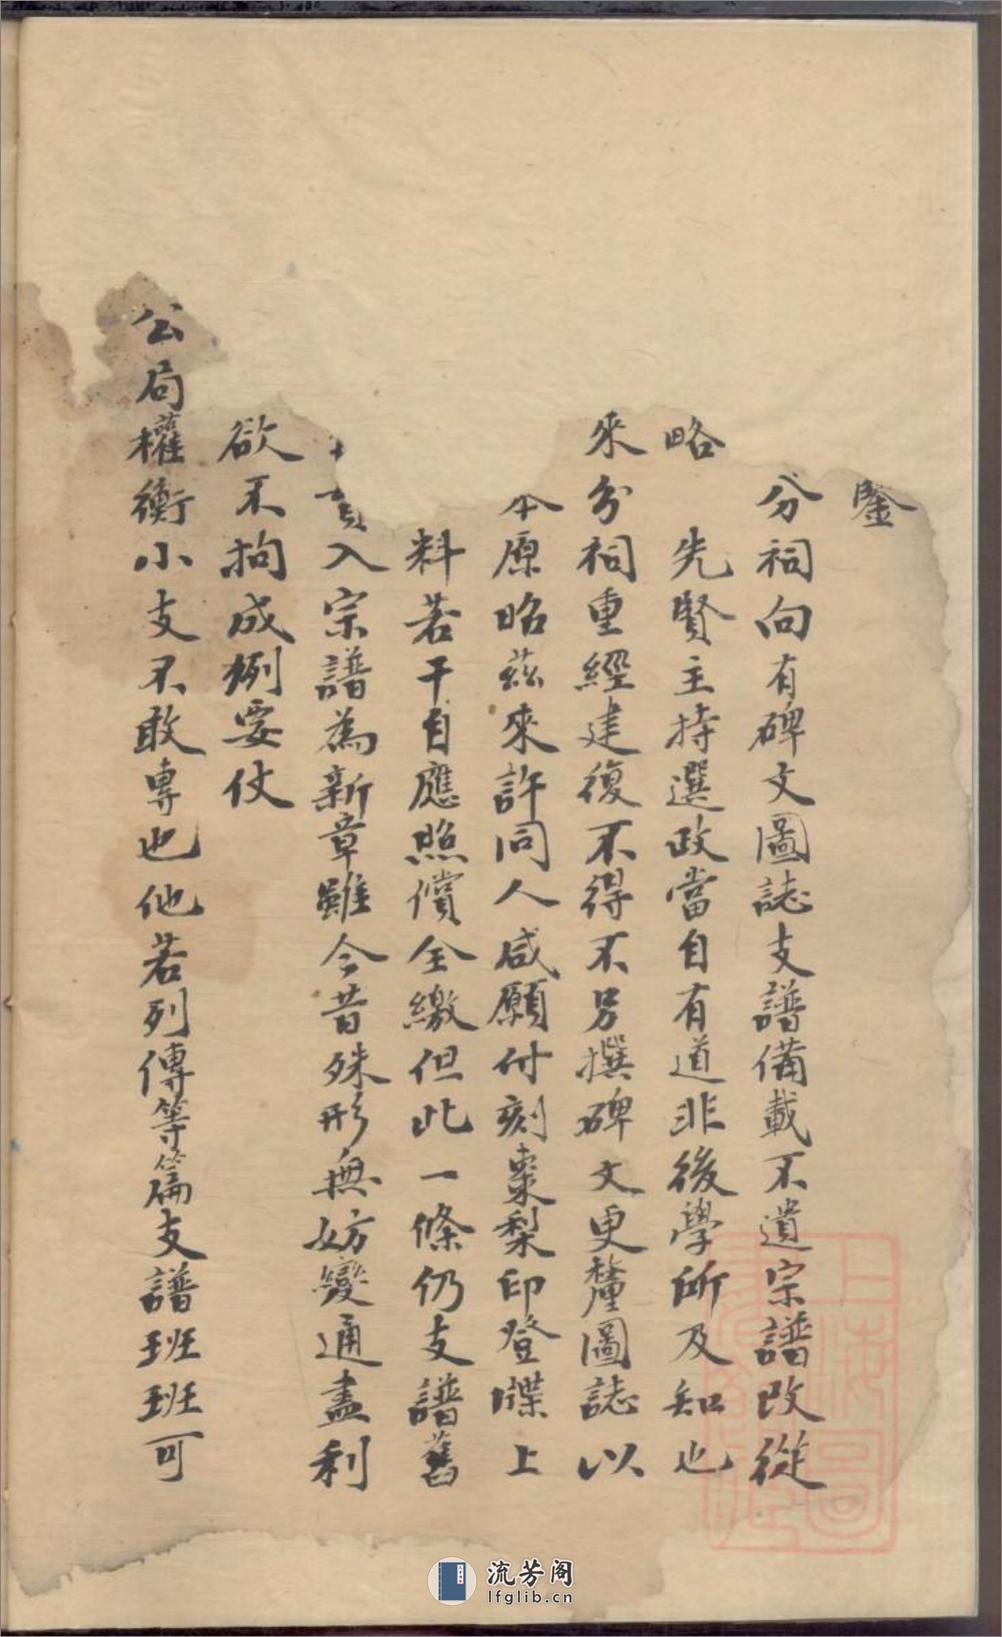 鑒
分祠向有碑文圖誌支譜備載不遺宗譜改從
略
先賢主持選政當自有道非後學所及知也
來分祠重經建復不得不另撰碑文更釐圖誌以
本原昭茲來許同人咸願付刻棗梨印登牒上
料若干自應照償全繳但此一條仍支譜舊
入宗譜為新章雖今昔殊形無妨變通盡利
欲不拘成例要仗
公局權衡小支不敢專也他若列傳等篇支譜班班可
上海圖
流芳阁
lfglib.cn